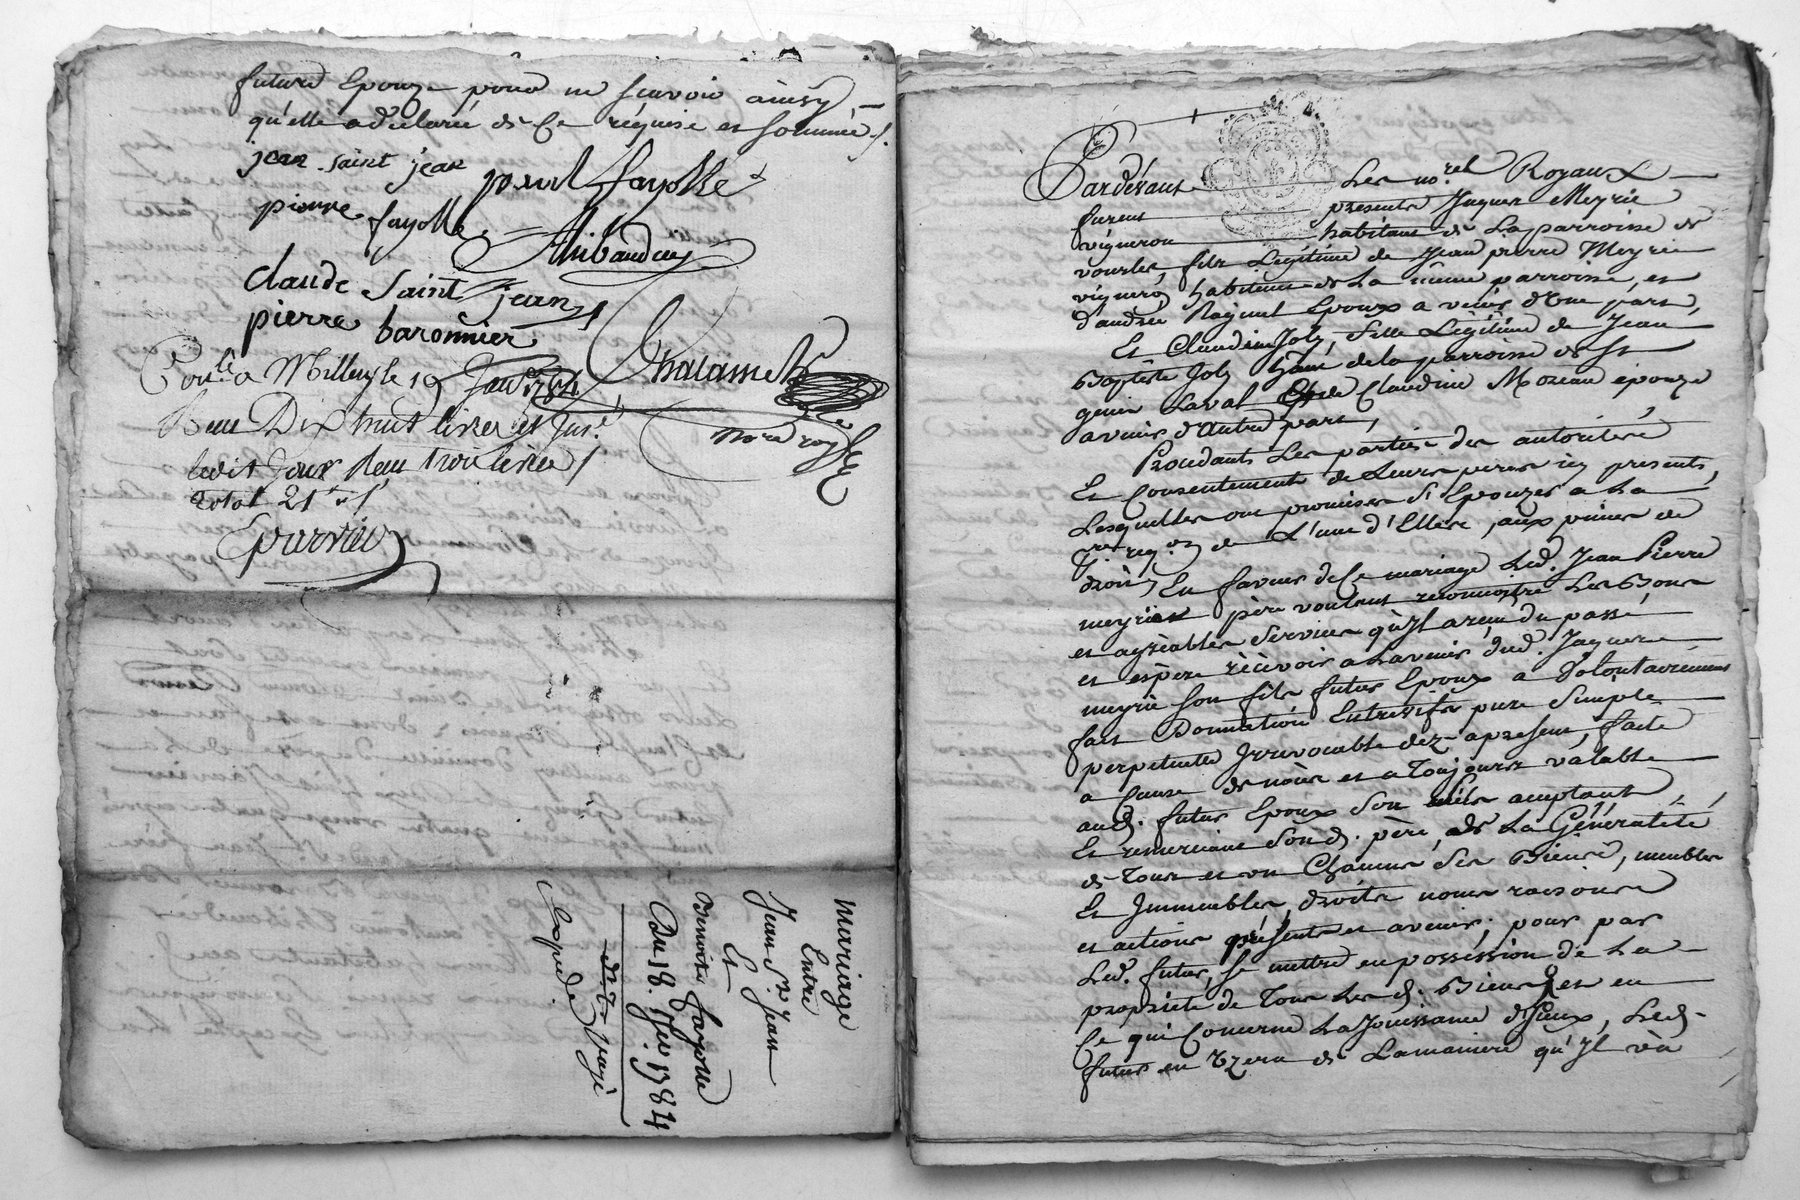 future Epouze pour ne scavoir ainsy
qu'elle a déclarée de ce réquise et sommée /.
jean saint jean paul fayolle
pierre fayolle
Thibaudier
claude Saint jean
pierre baronnier
Chalamel
no.re royal
Con.lé a Millery le 19 Janv.er 1784
Reçu Dix huit livres et Ins.é
ledit Jour Reçu trois livres /
Total 21
Epurvier
mariage
Entre
Jean S.t Jean
Et
Benoite fayolle
Du 18 Jer 1784
Expedié
Pardevant Les no.res Royaux
furent présents Jaques Meyrie
vigneron habitant de La parroisse de
vourles, fils Légitime de Jean pierre Meyrie
vigneron habitant de La meme parroisse, et
d'andrée Epoux a venir d'Une part,
Et Claudine Joly, fille Légitime de Jean
Baptiste Joly hant de la parroisse de St
genis Laval Et de Claudine Mozeau épouze
avenir d'Autre part,
Procédants Les parties des autorités
Et Consentements de Leurs peres icy presents,
Lesquelles ont promises S'Epouzer a La
1re reqon de L'une d'Elles, aux peines de
droit, En faveur de Ce mariage Led. Jean Pierre
meyrie père voulant reconnoitre Les Bons
et agréables Services qu'Jl a reçu du passé
et espère récevoir a L'avenir dud. Jaques
meyrie Son fils futur Epoux a volontairement
fait Donnation Entrevifs pure Simple
perpetuelle Jrrevocable dez apresent, faite
a Cause de nôces et a Toujours valable
aud. futur Epoux Son fils acceptant,
Et remerciant Sond. père, de La Généralité
de Tous et un Chacuns Ses Biens, meubles
Et Jmmeubles, droits noms raisons
et actions présents et avenir, pour par
Led. futur, Se mettre en posséssion de La
propriété de Tous Lesd. Biens, et en
Ce qui Concerne La Jouissance d'Jceux, Led.
futur en Uzera de La maniere qu'Jl va